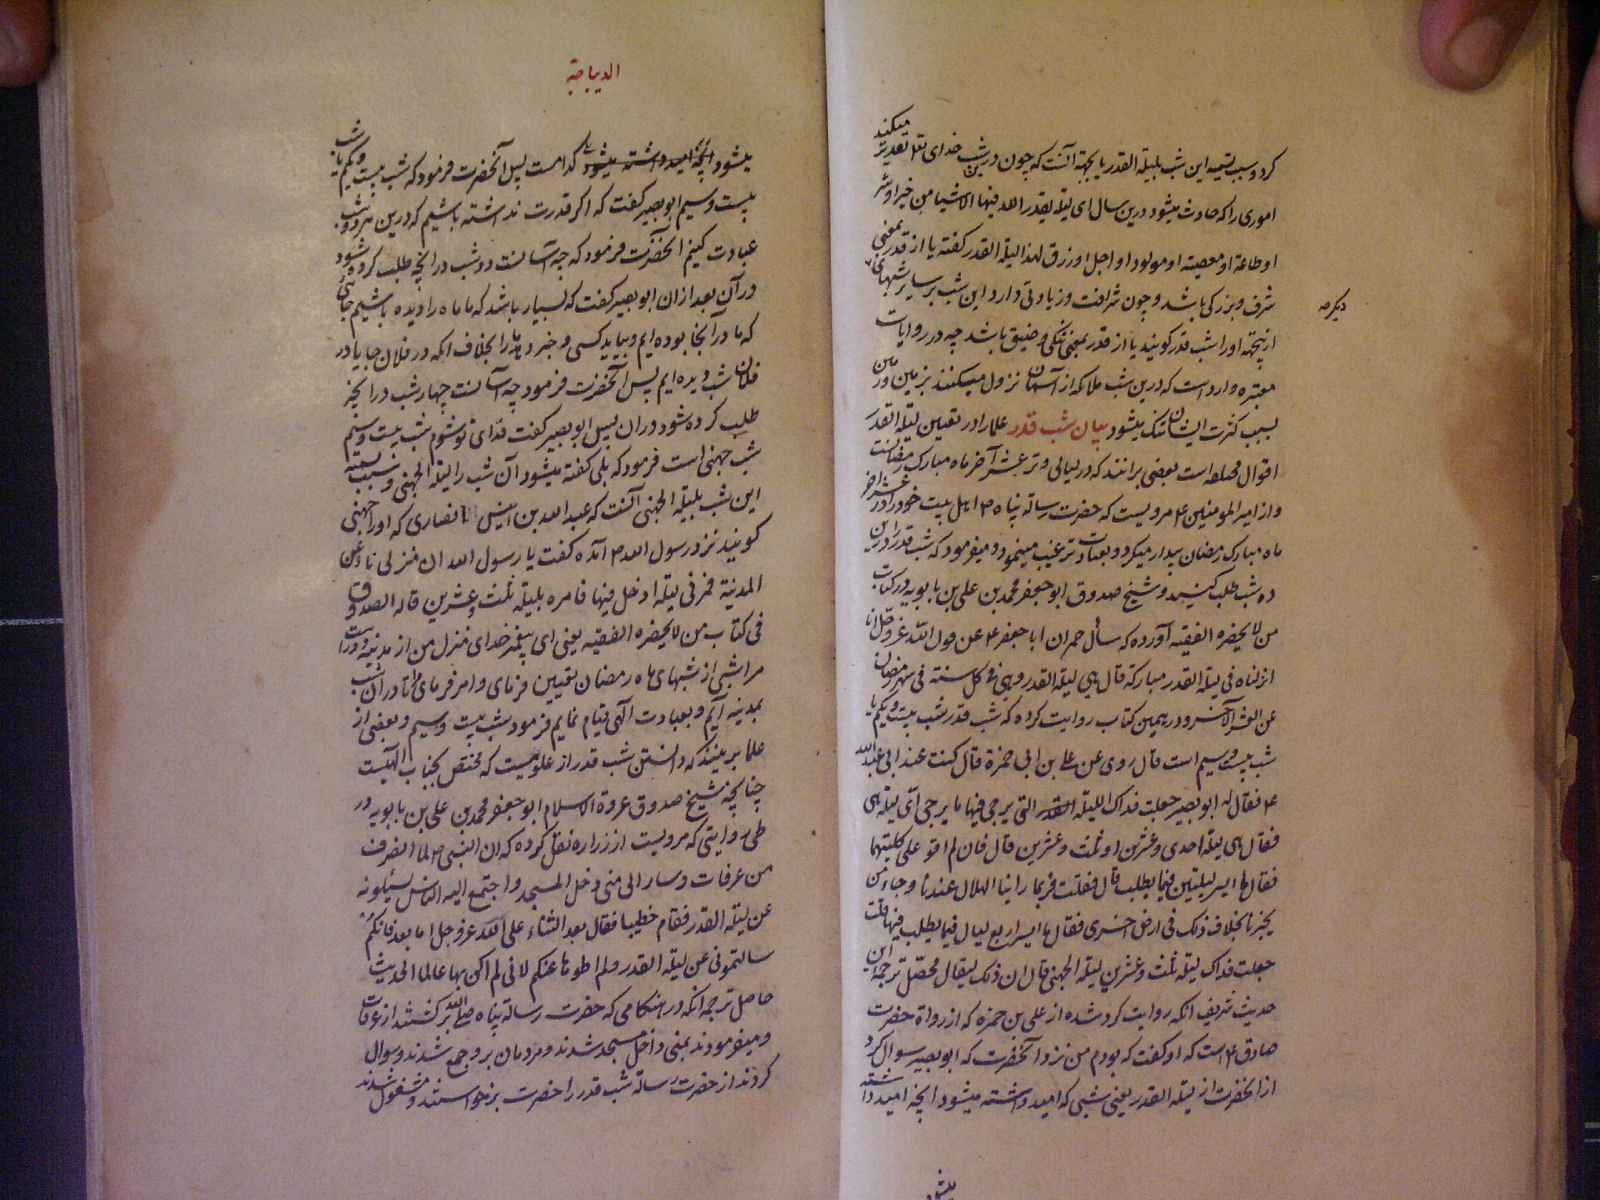 کرد و سبب تسمیه این شب بلیلة القدر یا بجهة آنست که چون درین شب خدای تعالی تقدیر میکند
اموری را که حادث میشود درین سال ای لیلة یقدر الله فیها الاشیا من خیر او شر
او طاعة او معصیة او مولود او اجل او رزق لهذا لیلة القدر کفته یا از قدر بمعنی
شرف و بزرکی باشد و چون شرافت و زیادتی دارد این شب بر سایر شبهای
دیکر
ازینجهة او را شب قدر کویند یا از قدر بمعنی تنکی و ضیق باشد چه در روایات
معتبره وارد است که درین شب ملائکه از آسمان نزول میکنند بزمین و زمین
بسبب کثرت ایشان تنک میشود بیان شب قدر علما را در تعیین لیلة القدر
اقوال مختلفه است بعضی برانند که در لیالی وتر عشر آخر ماه مبارک رمضانست
و از امیر المومنین ع مرویست که حضرت رسالة پناه ص اهل بیت خود را در عشر آخر
ماه مبارک رمضان بیدار میکرد و بعبادت ترغیب مینمود و میفرمود که شب قدر را درین
ده شب طلب کنید و شیخ صدوق ابو جعفر محمد بن علی بن بابویه در کتاب
من لا یحضره الفقیه آورده که سأل حمران ابا جعفر ع عن قول الله عز و جل انا
انزلناه فی لیلة القدر مبارکة قال هی لیلة القدر و هی فی کل سنة فی شهر رمضان
عن العشر الآخر و در همین کتاب روایت کرده که شب قدر شب بیست و یکم یا
شب بیست و سیم است قال روی عن علی بن ابی حمزة قال کنت عند ابی عبد الله
ع فقال له ابو بصیر جعلت فداک اللیلة القدر التی یرجی فیها ما یرجی آی لیلة هی
فقال هی لیلة احدی و عشرین او ثلث و عشرین قال فان لم اقو علی کلیتهما
فقال ما ایسر لیلتین فیما یطلب قال فقلت فربما راینا الهلال عندنا و جاء من
یخبرنا بخلاف ذلک فی ارض اخری فقال ما ایسر اربع لیال فیما یطلب فیها قلت
جعلت فداک لیلة ثلث و عشرین لیلة الجهنی قال ان ذلک لیقال محصل ترجمهٔ این
حدیث شریف انکه روایت کرد شده از علی بن حمزه که از رواة حضرت
صادق ع است که او کفت که بودم من نزد آنحضرت که ابو بصیر سوال کرد
از آنحضرت از لیلة القدر یعنی شبی که امید داشته میشود آنچه امید داشته
میشود
الدیباجة
میشود آنچه امید داشته میشود کدامست پس آنحضرت فرمود که شب بیست و یکم یا شب
بیست و سیم ابو بصیر کفت که اکر قدرت نداشته باشیم که درین هر دو شب
عبادت کنیم آنحضرت فرمود که چه آسانست دو شب در آنچه طلب کرده شود
در آن بعد از ان ابو بصیر کفت که بسیار باشد که ما ماه را دیده باشیم جائی
که ما در آنجا بوده ایم و بیاید کسی و خبر دهد ما را بخلاف انکه در فلان جا یا در
فلان شب دیده ایم پس آنحضرت فرمود چه آسانست چهار شب در آنچه
طلب کرده شود در ان پس ابو بصیر کفت فدای تو شوم شب بیست و سیم
شب جهنی است فرمود که بلی کفته میشود آن شب را لیلة الجهنی و سبب تسمیه
این شب بلیلة الجهنی آنست که عبد الله بن انیس الانصاری که او را جهنی
کویند نزد رسول الله ص آمده کفت یا رسول الله ان منزلی ناء عن
المدینة فمرنی لیلة ادخل فیها فامره بلیلة ثلث و عشرین قاله الصدوق
فی کتاب من لا یحضره الفقیه یعنی ای پیغمبر خدای منزل من از مدینه دور است
مرا شبی از شبهای ماه رمضان تعیین فرمای و امر فرمای تا در آن شب
بمدینه آیم و بعبادت آلهی قیام نمایم فرمود شب بیست و سیم و بعضی از
علما برینند که دانستن شب قدر از علومیست که مختص بجناب الهیست
چنانچه شیخ صدوق عروة الاسلام ابو جعفر محمد بن علی بن بابویه در
طی روایتی که مرویست از زراره نقل کرده که ان النبی ص لما انصرف
من عرفات و سار الی منی دخل المسجد و اجتمع الیه الناس یسئلونه
عن لیلة القدر فقام خطیبا فقال بعد الثناء علی الله عز و جل اما بعد فانکم
سالتمونی عن لیلة القدر و لم اطوها عنکم لانی لم اکن بها عالما الحدیث
حاصل ترجمه انکه در هنکامی که حضرت رسالة پناه صلی الله بر کشتند از عرفات
و میفرمودند بمنی داخل مسجد شدند و مردمان برو جمع شدند و سوال
کردند از حضرت رسالة شب قدر را حضرت برخواستند و مشغول شدند